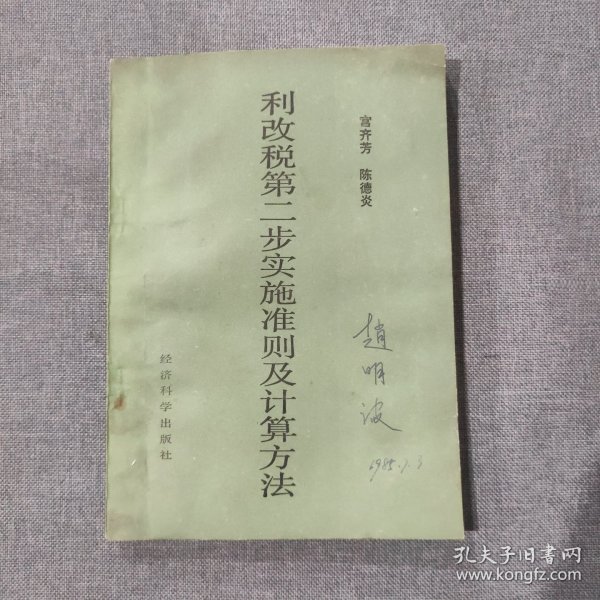 宫齐芳 陈德炎
利改税第二步实施准则及计算方法
经济科学出版社
趙明波
1985.1.3
孔夫子旧书网
www.kongfz.com